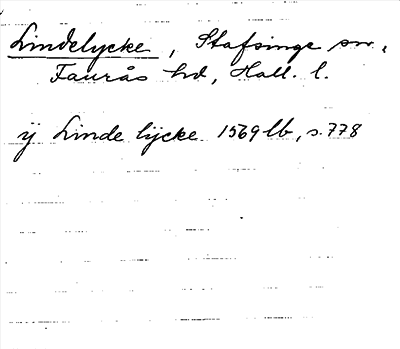 Lindelycke, Stafsinge sn,
Faurås hd, Hall. l.
ÿ Linde lÿcke 1569 lb, s. 778